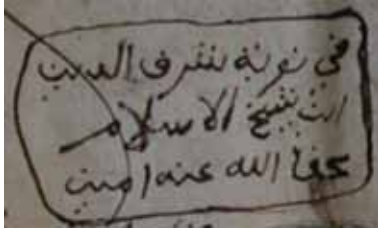 في نوبة شرف الدين
ابن شيخ الاسلام
عفا الله عنه امين